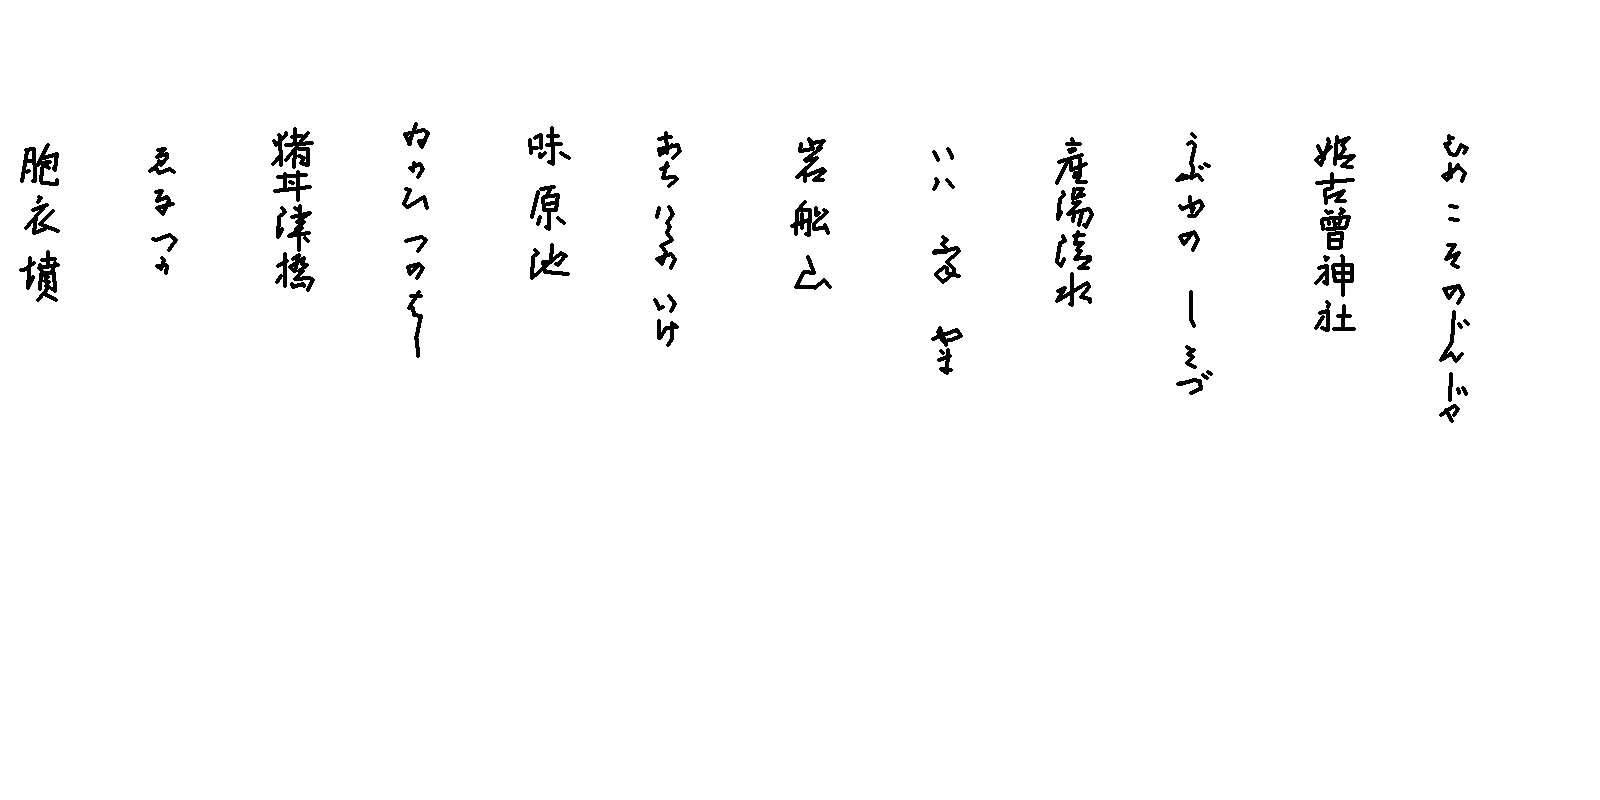 ひめこそのじんじや
姫古曾神社
うぶゆのしみづ
産湯清水
いはふねやま
岩船山
あちはらのいけ
味原池
ゐかひつのはし
猪甘津橋
ゑなつか
胞衣墳